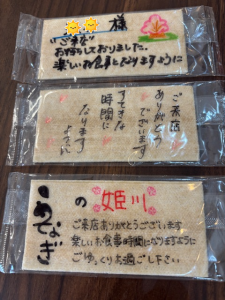 様
"ご来店"
お待ちしておりました。
楽しいお食事となりますように
ご来店
ありがとう
ございます
すてきな
時間に
なります
ように
うなぎ
の 姫川
ご来店ありがとうございます
楽しいお食事時間になりますように
ごゆっくりお過ごし下さい